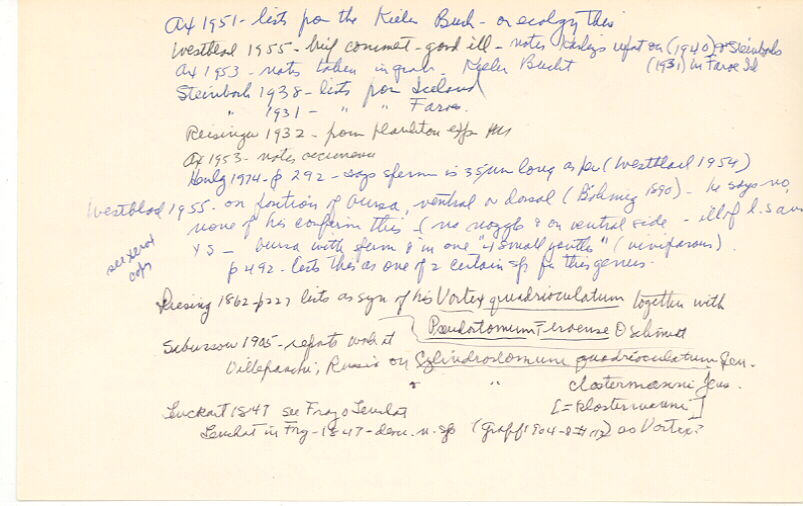 Ax 1951 - lists from the Kieler Buch - on ecology this
Westblad 1955 - brief comment - good ill - notes Karling's report on (1940) & Steinböck
Ax 1953 - notes taken in grab. Kieler Bucht (1931) in Faroe Id
Steinböck 1938 - lists from Iceland
" 1931 - " " Faroe.
Reisinger 1932 - from plankton
Ax 1953 - notes occurrence
1974 - p 292 - says sperm is 35 µm long as per (Westblad 1954)
Westblad 1955 - on position of bursa, ventral or dorsal (Böhmig 1890) - he says no,
none of his confirm this - (no on ventral side - ill of l.s and
x s - bursa with sperm & in one "4 small youths" (viviparous).
see xerox copy
p 492 - lists this as one of 2 certain sp for this genus.
Diesing 1862 - p 227 lists as syn of his Vortex quadrioculatum together with
Pseudostomum faeroense O Schmidt
1905 - reports both at
Villefranche, Russia on Cylindrostomum quadrioculatum Jen.
& " clostermanni Jens.
[= Klostermanni]
Leuckart 1847 see Frey & Leuckart
Leuckart in Frey - 1847 - descr. n. sp (Graff 1904-8 ) as Vortex?